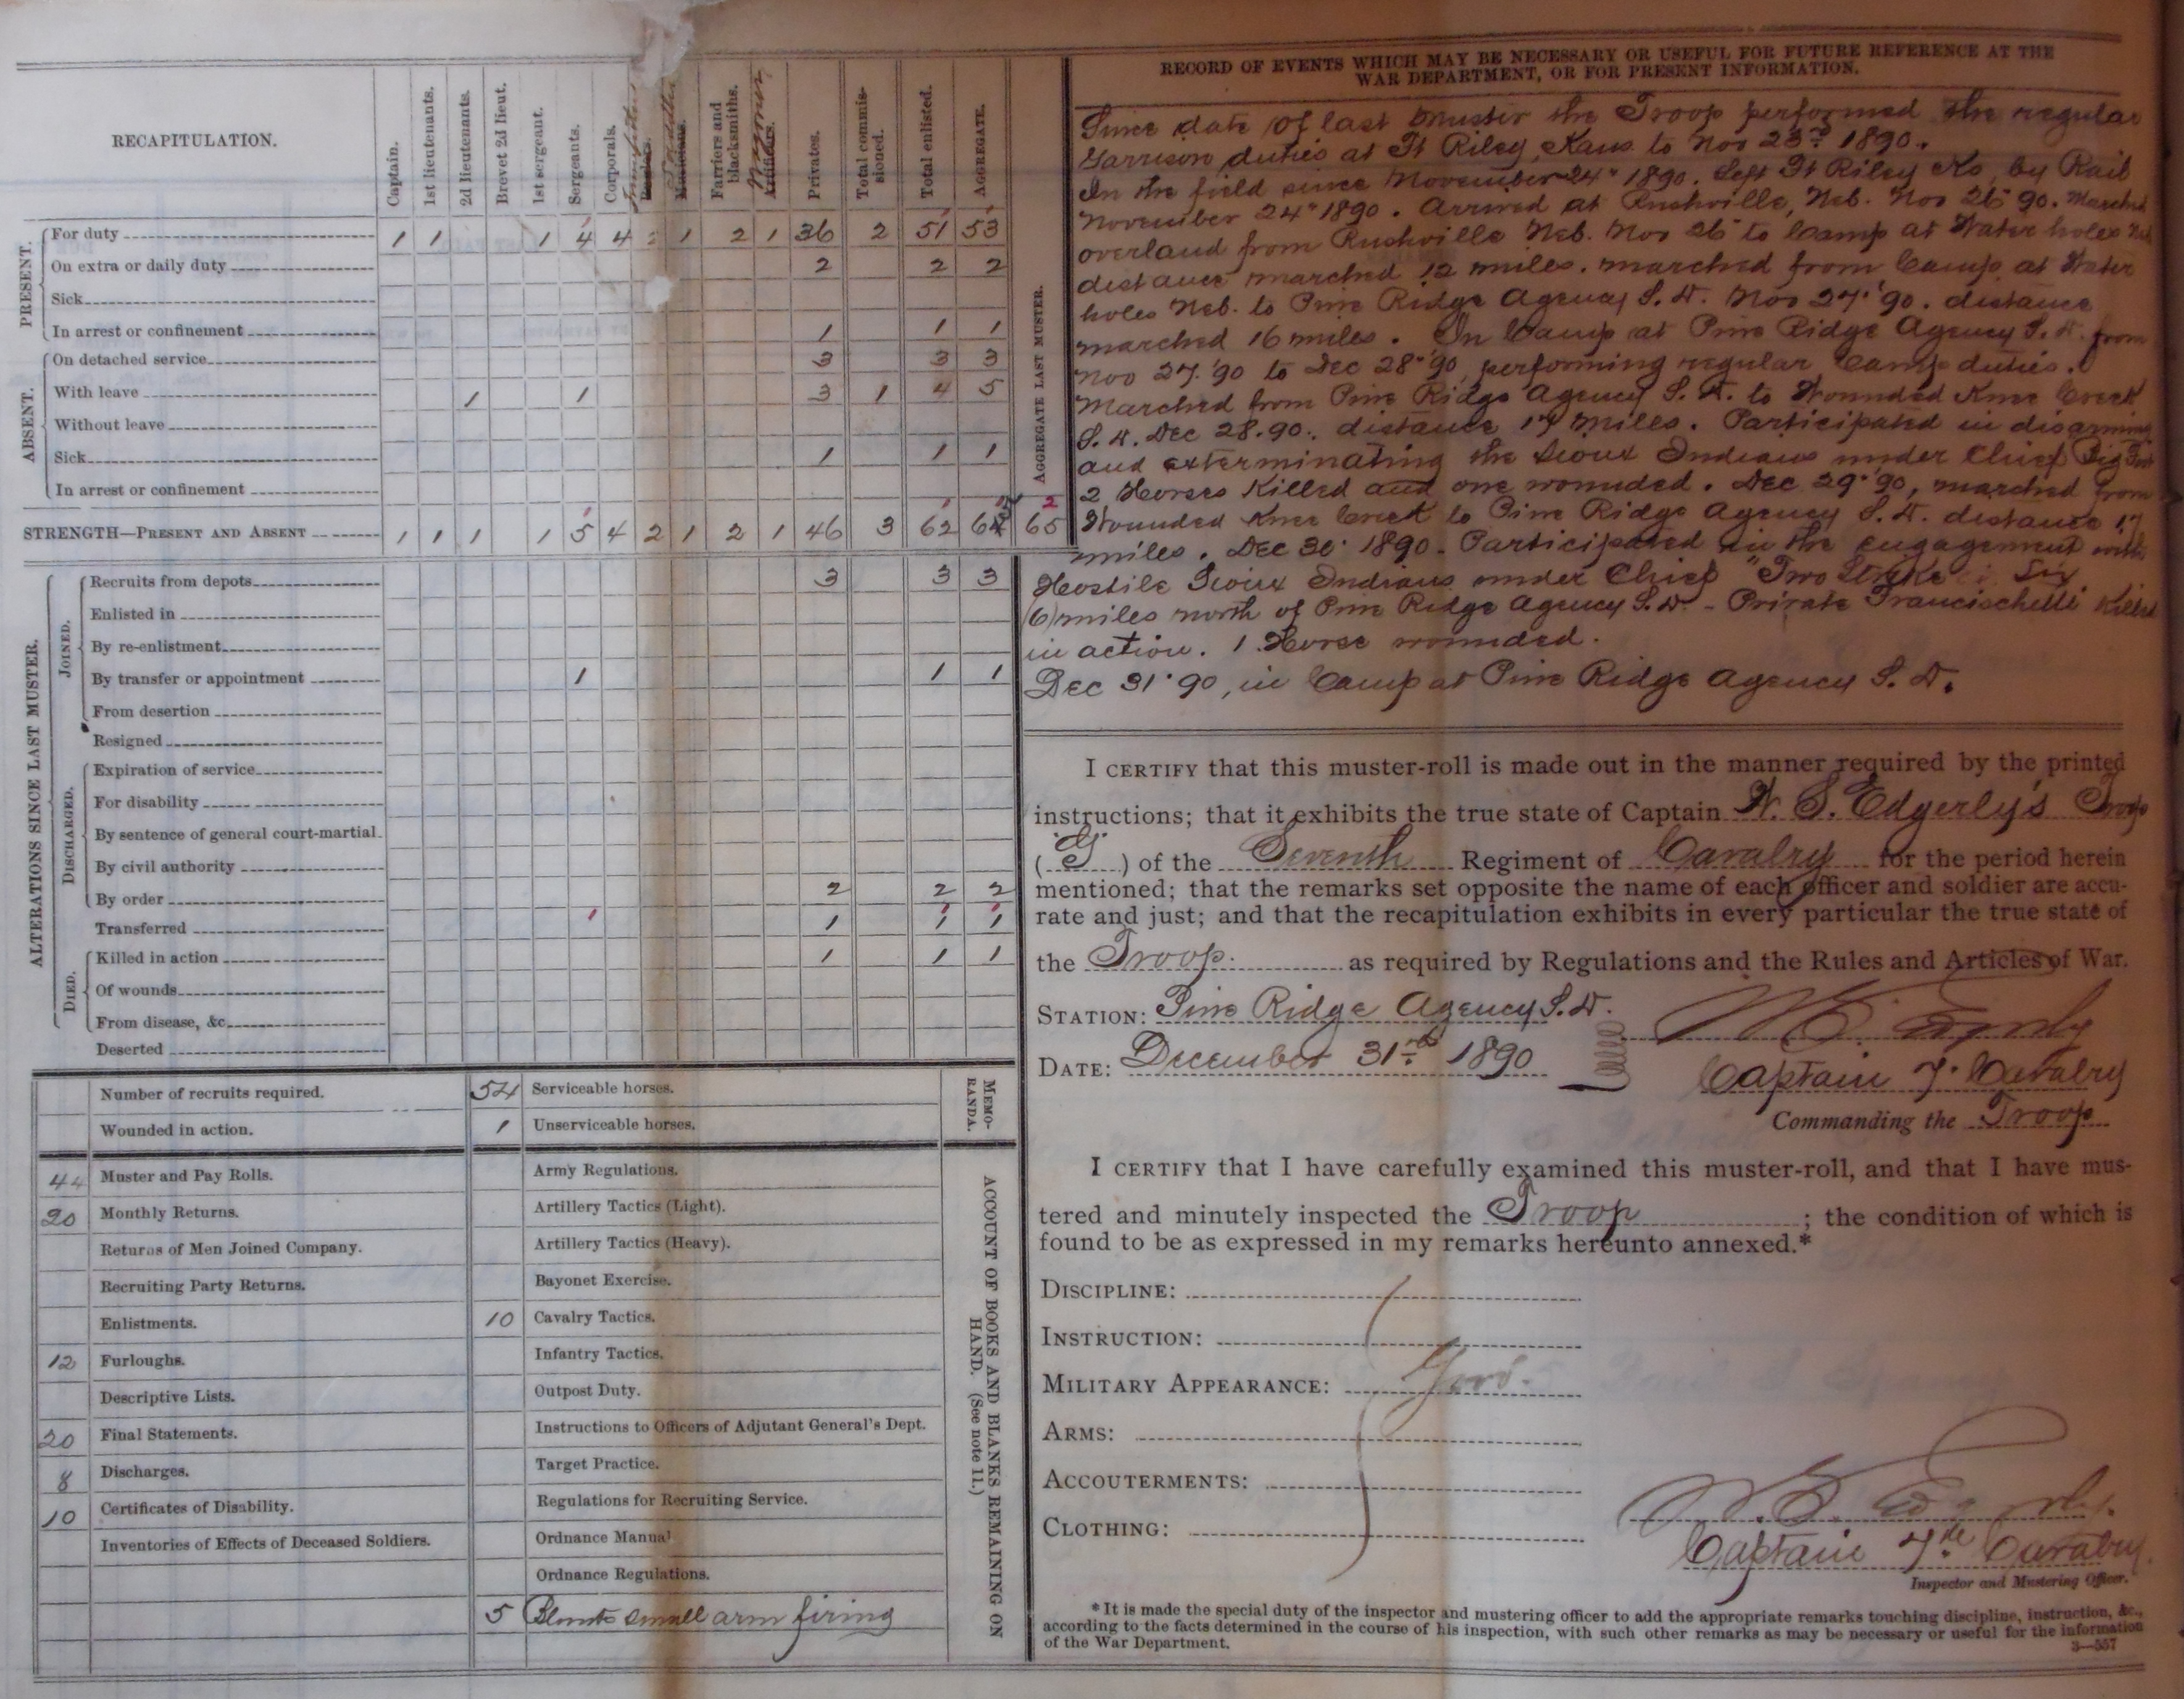 RECAPITULATION.
Captain.
1st lieutenants.
2d lieutenants.
Brevet 2d lieut.
1st sergeant.
Sergeants.
Corporals.
Musicians.
Farriers and blacksmiths.
Artificers.
Privates.
Total commis-
sioned.
Total enlisted.
AGGREGATE.
AGGREGATE LAST MUSTER.
PRESENT.
For duty 1 1 1 4 4 2 1 2 1 36 2 51 53
On extra or daily duty 2 2 2
Sick
In arrest or confinement 1 1 1
ABSENT.
On detached service 3 3 3
With leave 1 1 3 1 4 5
Without leave
Sick 1 1 1
In arrest or confinement
STRENGTH—PRESENT AND ABSENT 1 1 1 1 5 4 2 1 2 1 46 3 62 65
ALTERATIONS SINCE LAST MUSTER.
JOINED.
Recruits from depots 3 3 3
Enlisted in
By re-enlistment
By transfer or appointment 1 1 1
From desertion
Resigned
DISCHARGED.
Expiration of service
For disability
By sentence of general court-martial
By civil authority
By order 2 2 2
Transferred 1 1 1
DIED.
Killed in action 1 1 1
Of wounds
From disease, &c
Deserted
Number of recruits required.
Wounded in action.
54 Serviceable horses.
1 Unserviceable horses.
MEMO-
RANDA.
44 Muster and Pay Rolls.
20 Monthly Returns.
Returns of Men Joined Company.
Recruiting Party Returns.
Enlistments.
12 Furloughs.
Descriptive Lists.
20 Final Statements.
8 Discharges.
10 Certificates of Disability.
Inventories of Effects of Deceased Soldiers.
Army Regulations.
Artillery Tactics (Light).
Artillery Tactics (Heavy).
Bayonet Exercise.
10 Cavalry Tactics.
Infantry Tactics.
Outpost Duty.
Instructions to Officers of Adjutant General's Dept.
Target Practice.
Regulations for Recruiting Service.
Ordnance Manual
Ordnance Regulations.
5 Blunts small arm firing
ACCOUNT OF BOOKS AND BLANKS REMAINING ON
HAND. (See note 11.)
RECORD OF EVENTS WHICH MAY BE NECESSARY OR USEFUL FOR FUTURE REFERENCE AT THE
WAR DEPARTMENT, OR FOR PRESENT INFORMATION.
Since date of last muster the Troop performed the regular
Garrison duties at Ft Riley, Kans. to Nov 23rd 1890.
In the field since November 24" 1890. Left Ft Riley Ks, by Rail
November 24" 1890. Arrived at Rushville, Neb. Nov 26" 90. Marched
overland from Rushville Neb. Nov 26" to Camp at Water holes Neb
distance marched 12 miles. marched from Camp at Water
holes Neb. to Pine Ridge Agency S.D. Nov 27" '90. distance
marched 16 miles. In Camp at Pine Ridge Agency S.D. from
Nov 27. '90 to Dec 28" 90, performing regular Camp duties.
Marched from Pine Ridge Agency S.D. to Wounded Knee Creek
S.D. Dec 28. 90. distance 17 miles. Participated in disarming
and exterminating the Sioux Indians under Chief Big Foot
2 Horses Killed and one wounded. Dec 29" 90, marched from
Wounded Knee Creek to Pine Ridge Agency S.D. distance 17
miles. Dec 30" 1890. Participated in the engagement with
Hostile Sioux Indians under Chief "Two Strike" Six
(6) miles north of Pine Ridge Agency S.D. - Private Francischetti Killed
in action. 1 Horse wounded.
Dec 31" 90, in Camp at Pine Ridge Agency S.D.
I CERTIFY that this muster-roll is made out in the manner required by the printed
instructions; that it exhibits the true state of Captain W. S. Edgerly's Troop
("G") of the Seventh Regiment of Cavalry for the period herein
mentioned; that the remarks set opposite the name of each officer and soldier are accu-
rate and just; and that the recapitulation exhibits in every particular the true state of
the Troop. as required by Regulations and the Rules and Articles of War.
STATION: Pine Ridge Agency S.D.
DATE: December 31st 1890
W. S. Edgerly
Captain 7. Cavalry
Commanding the Troop
I CERTIFY that I have carefully examined this muster-roll, and that I have mus-
tered and minutely inspected the Troop ; the condition of which is
found to be as expressed in my remarks hereunto annexed.*
DISCIPLINE:
INSTRUCTION:
MILITARY APPEARANCE: Good.
ARMS:
ACCOUTERMENTS:
CLOTHING:
W. S. Edgerly.
Captain 7th Cavalry.
Inspector and Mustering Officer.
*It is made the special duty of the inspector and mustering officer to add the appropriate remarks touching discipline, instruction, &c.,
according to the facts determined in the course of his inspection, with such other remarks as may be necessary or useful for the information
of the War Department.
3—557